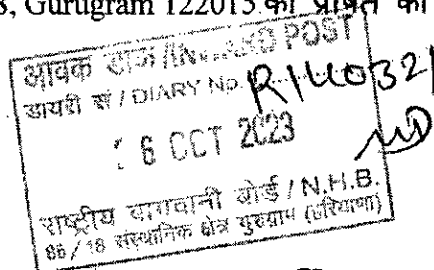 8, Gurugram 122015 को प्रेषित की
आवक डाक / INWARD POST
डायरी सं / DIARY No. R140321
6 OCT 2023
राष्ट्रीय बागवानी बोर्ड / N.H.B.
संस्थानिक क्षेत्र गुरुग्राम (हरियाणा)